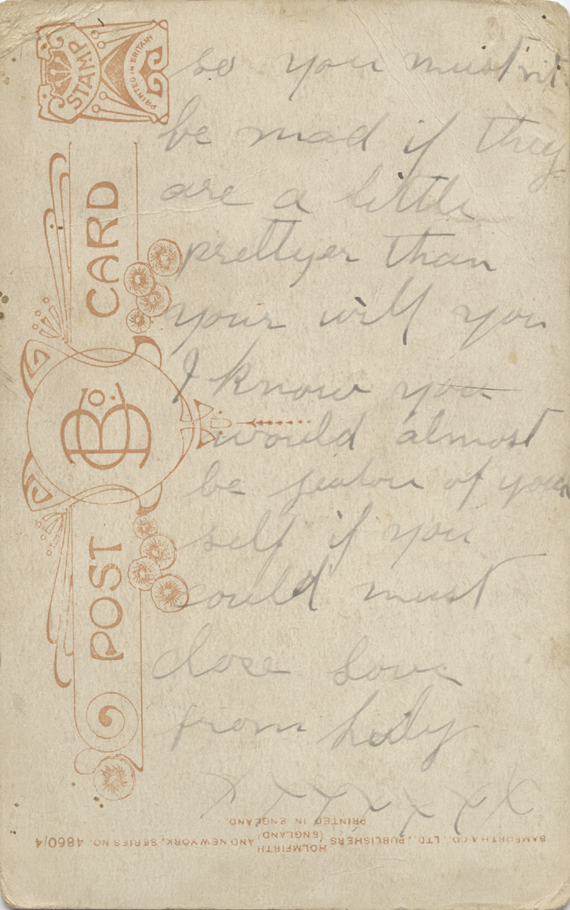 STAMP
PRINTED IN BRITAIN
POST CARD
B Co.
so you mustn't
be mad if they
are a little
prettyer than
your will you
I know you
would almost
be of your
self if you
could must
close Love
from
x x x x x x x
BAMFORTH & CO., LTD., PUBLISHERS, HOLMFIRTH (ENGLAND) AND NEW YORK, SERIES NO. 4860/4
PRINTED IN ENGLAND.